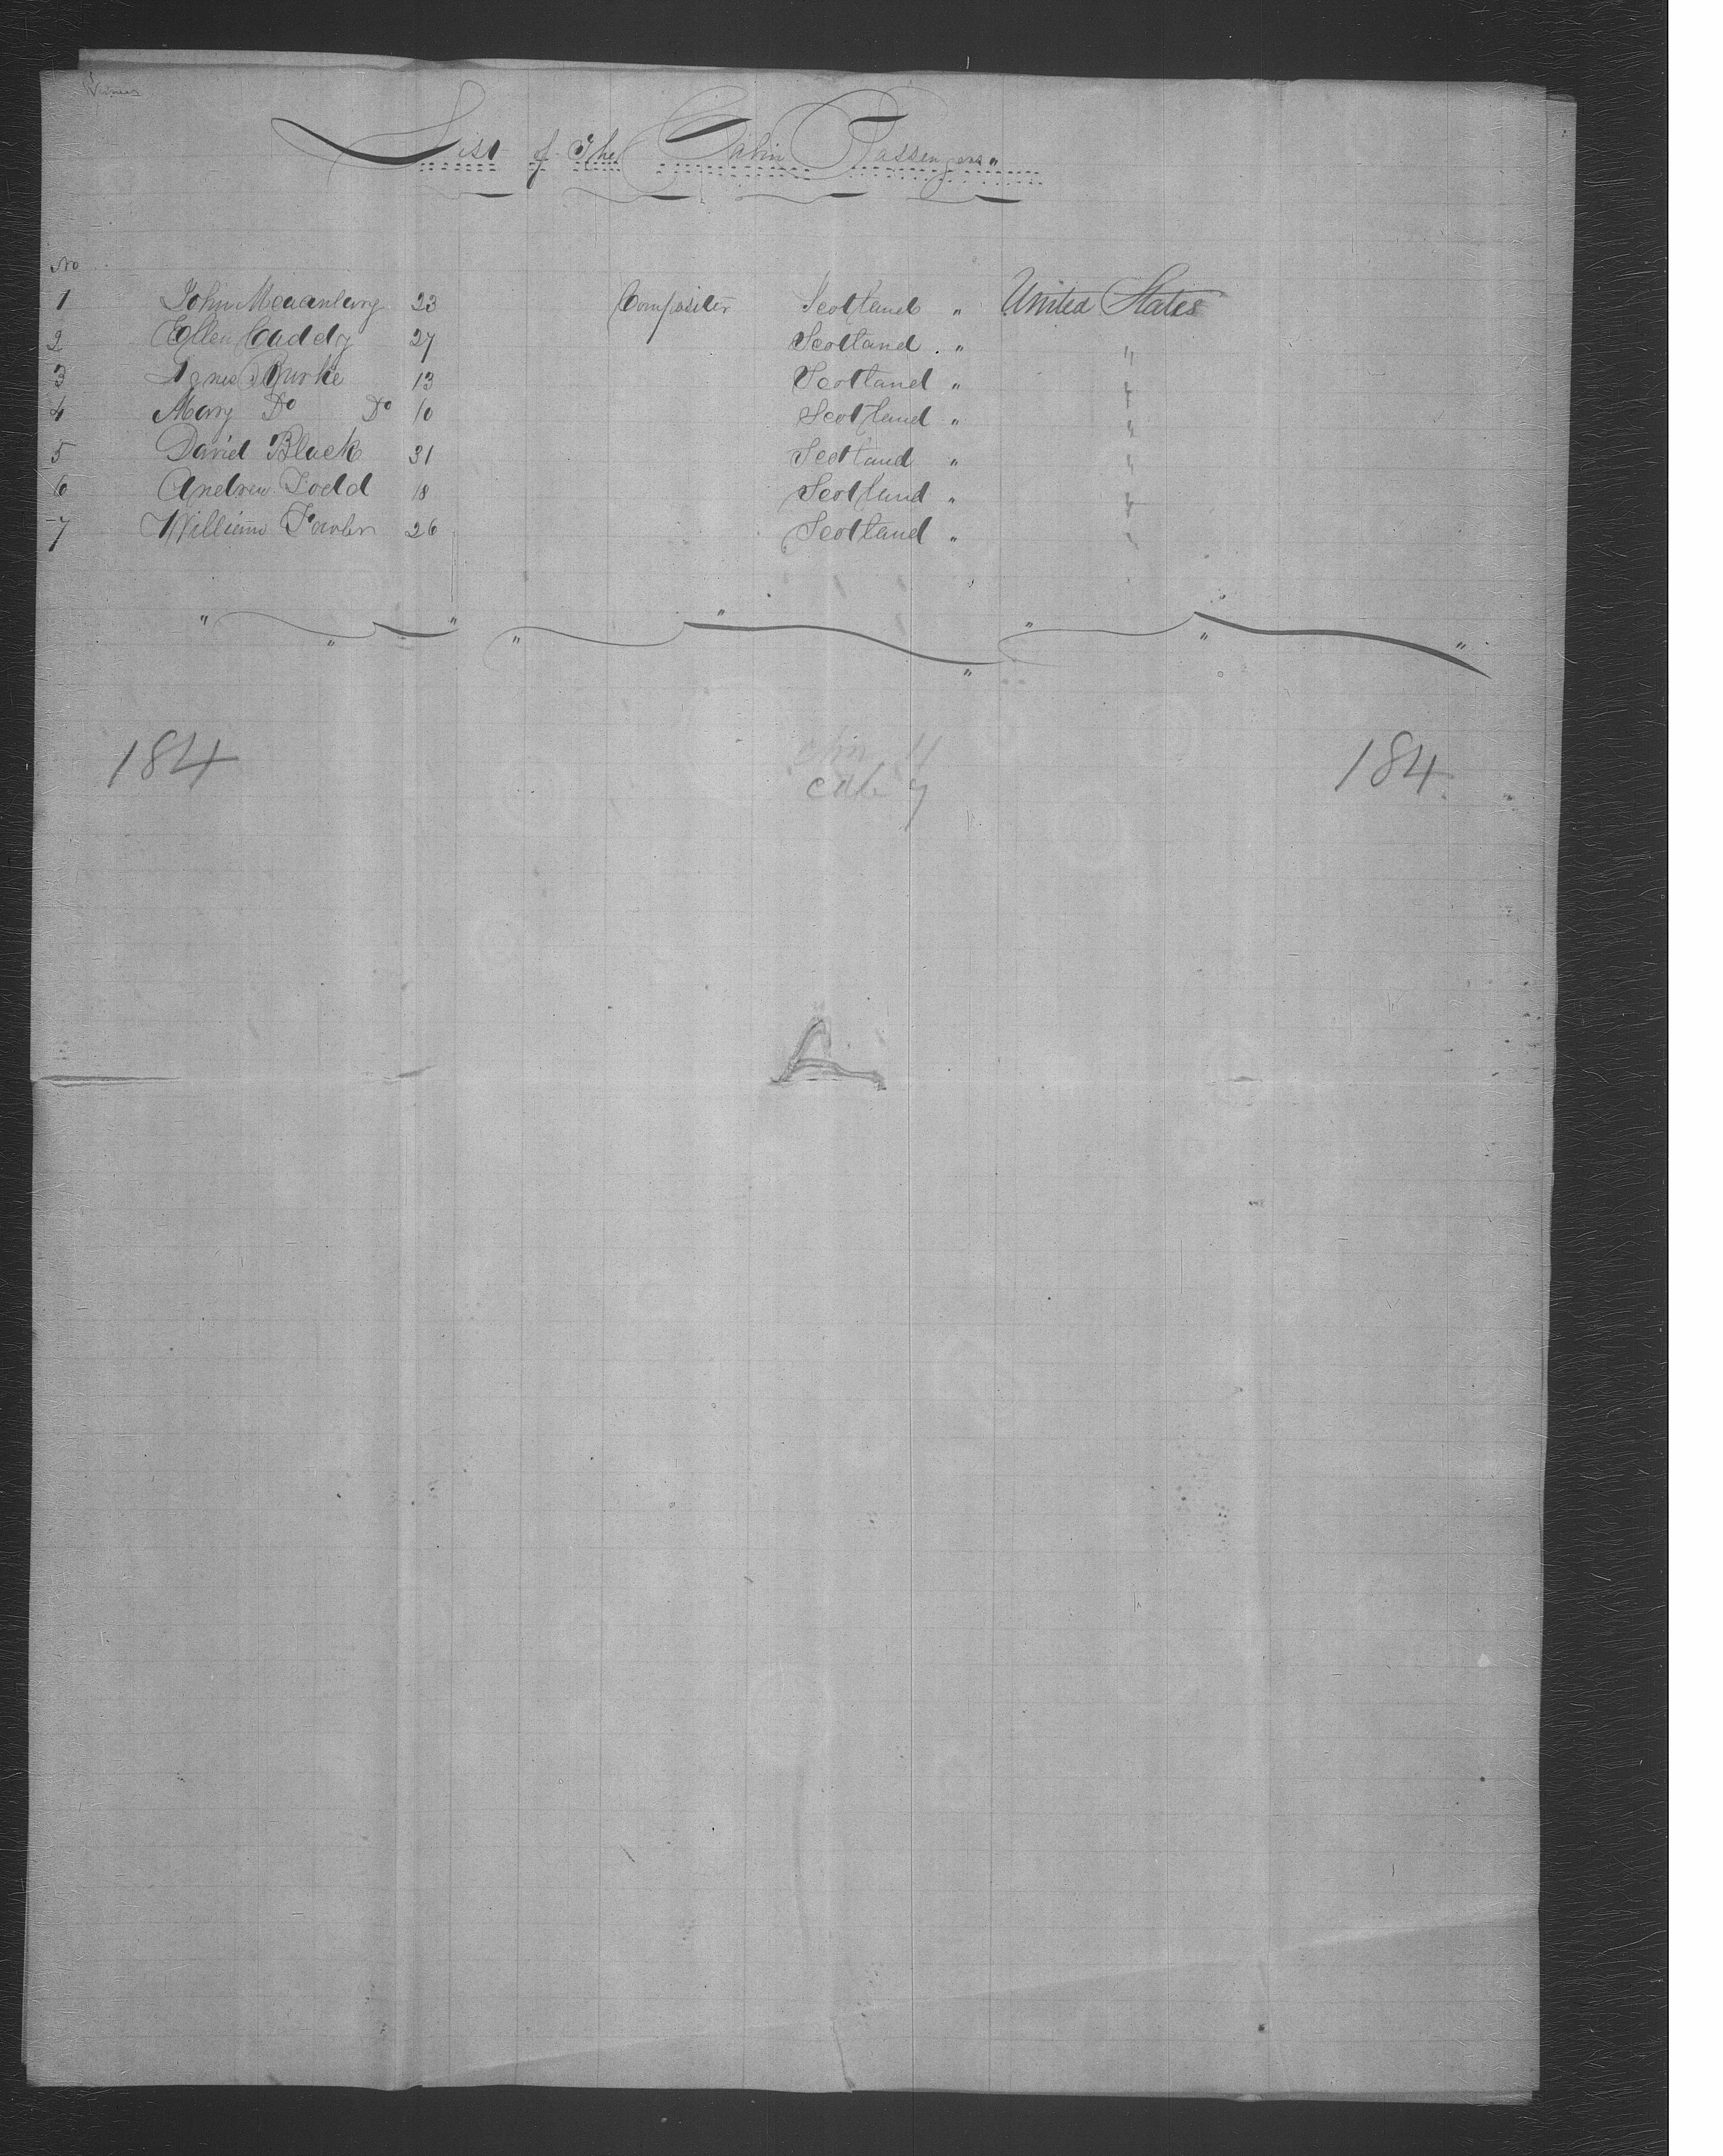 List of The Cabin Passengers "
No
1 John 23 Compositer Scotland " United States
2 Ellen Caddy 27 Scotland " "
3 Agnes Burke 13 Scotland " "
4 Mary Do Do 10 Scotland " "
5 David Black 31 Scotland " "
6 Andrew Todd 18 Scotland " "
7 William 26 Scotland " "
184 184
cab 7
A